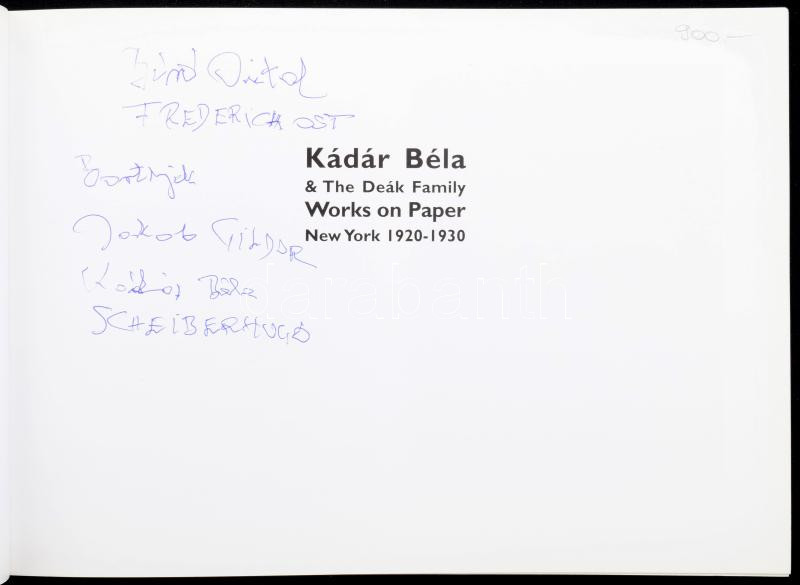 900.—
FREDERICK OST
Bortnyik
Jakob GILDOR
Kádár Béla
SCHEIBER HUGÓ
Kádár Béla
& The Deák Family
Works on Paper
New York 1920-1930
darabanth